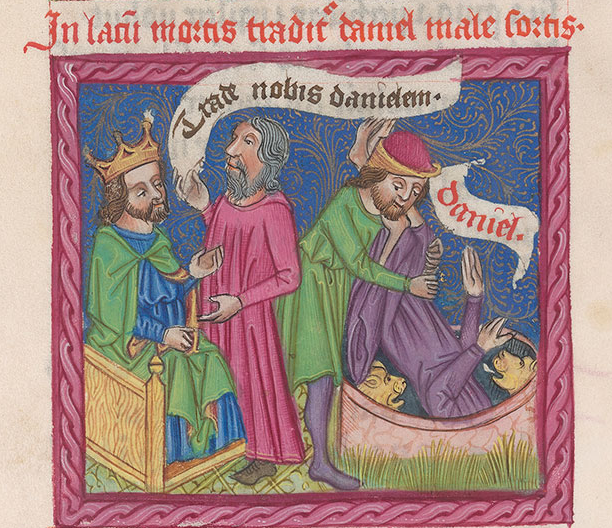 In lacū mortis tradit᷒ daniel male sortis.
Trade nobis danielem.
daniel.